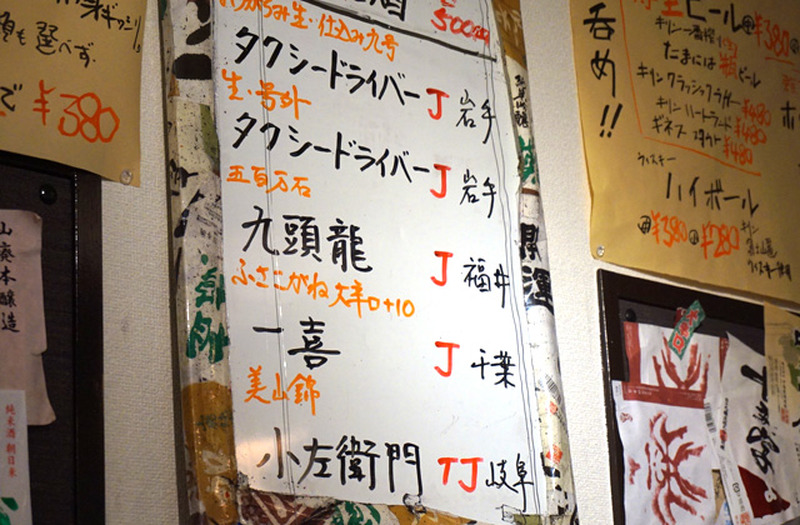 ¥380
酒
500
生・仕込み九号
タクシードライバー J 岩手
生・号外
タクシードライバー J 岩手
五百万石
九頭龍 J 福井
ふさこがね 大辛口+10
一喜 J 千葉
美山錦
小左衛門 TJ 岐阜
呑め!!
生ビール ¥380
キリン一番搾り
たまには瓶ビール
キリンクラシックラガー ¥480
キリンハートランド ¥480
ギネス スタウト ¥480
ウィスキー
ハイボール
¥380 ¥280
キリン
富士山麓
ウィスキー使用
山廃本醸造
純米酒 朝日米
開運